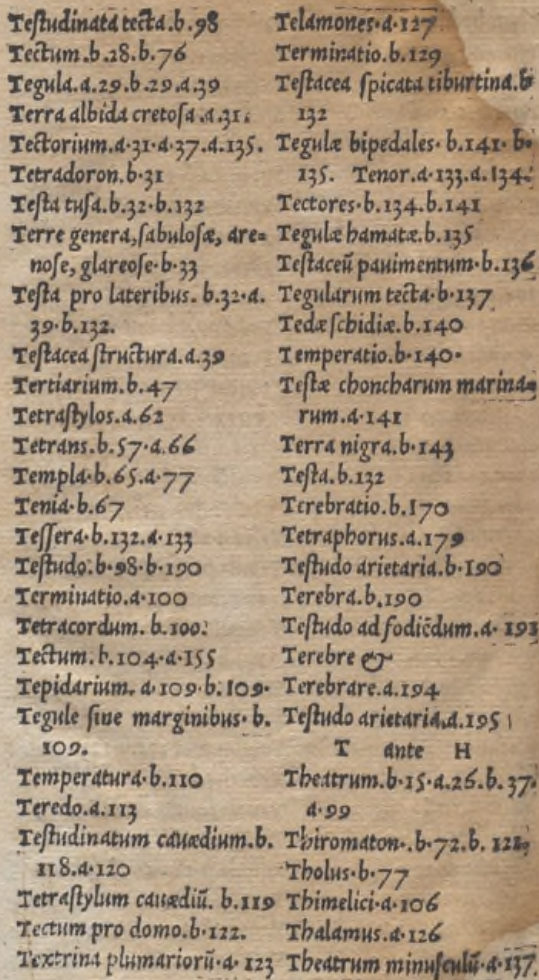 Teſtudinata tecta.b.98
Tectum.b.28.b.76
Tegula.a.29.b.29.a.39
Terra albida cretoſa.a.31.
Tectorium.a.31.a.37.a.135.
Tetradoron.b.31
Teſta tuſa.b.32.b.132
Terre genera, ſabuloſæ, are=
noſe, glareoſe.b.33
Teſta pro lateribus. b.32.a.
39.b.132.
Teſtacea ſtructura.a.39
Tertiarium.b.47
Tetraſtylos.a.62
Tetrans.b.57.a.66
Templa.b.65.a.77
Tenia.b.67
Teſſera.b.132.a.133
Teſtudo.b.98.b.190
Terminatio.a.100
Tetracordum. b.100.
Tectum.b.104.a.155
Tepidarium. a.109.b.109.
Tegule ſine marginibus. b.
109.
Temperatura.b.110
Teredo.a.113
Teſtudinatum cauædium.b.
118.a.120
Tetraſtylum cauædiũ. b.119
Tectum pro domo.b.122.
Textrina plumariorũ.a.123
Telamones.a.127
Terminatio.b.129
Teſtacea ſpicata tiburtina.b
132
Tegulæ bipedales. b.141. b.
135. Tenor.a.133.a.134.
Tectores.b.134.b.141
Tegulæ hamatæ.b.135
Teſtaceũ pauimentum.b.136
Tegularum tecta.b.137
Tedæ ſchidiæ.b.140
Temperatio.b.140.
Teſtæ choncharum marina=
rum.a.141
Terra nigra.b.143
Teſta.b.132
Terebratio.b.170
Tetraphorus.a.179
Teſtudo arietaria.b.190
Terebra.b.190
Teſtudo ad fodiẽdum.a.193
Terebre &
Terebrare.a.194
Teſtudo arietaria.a.195
T ante H
Theatrum.b.15.a.26.b.37.
a.99
Thiromaton.b.72.b.122.
Tholus.b.77
Thimelici.a.106
Thalamus.a.126
Theatrum minuſculũ.a.137